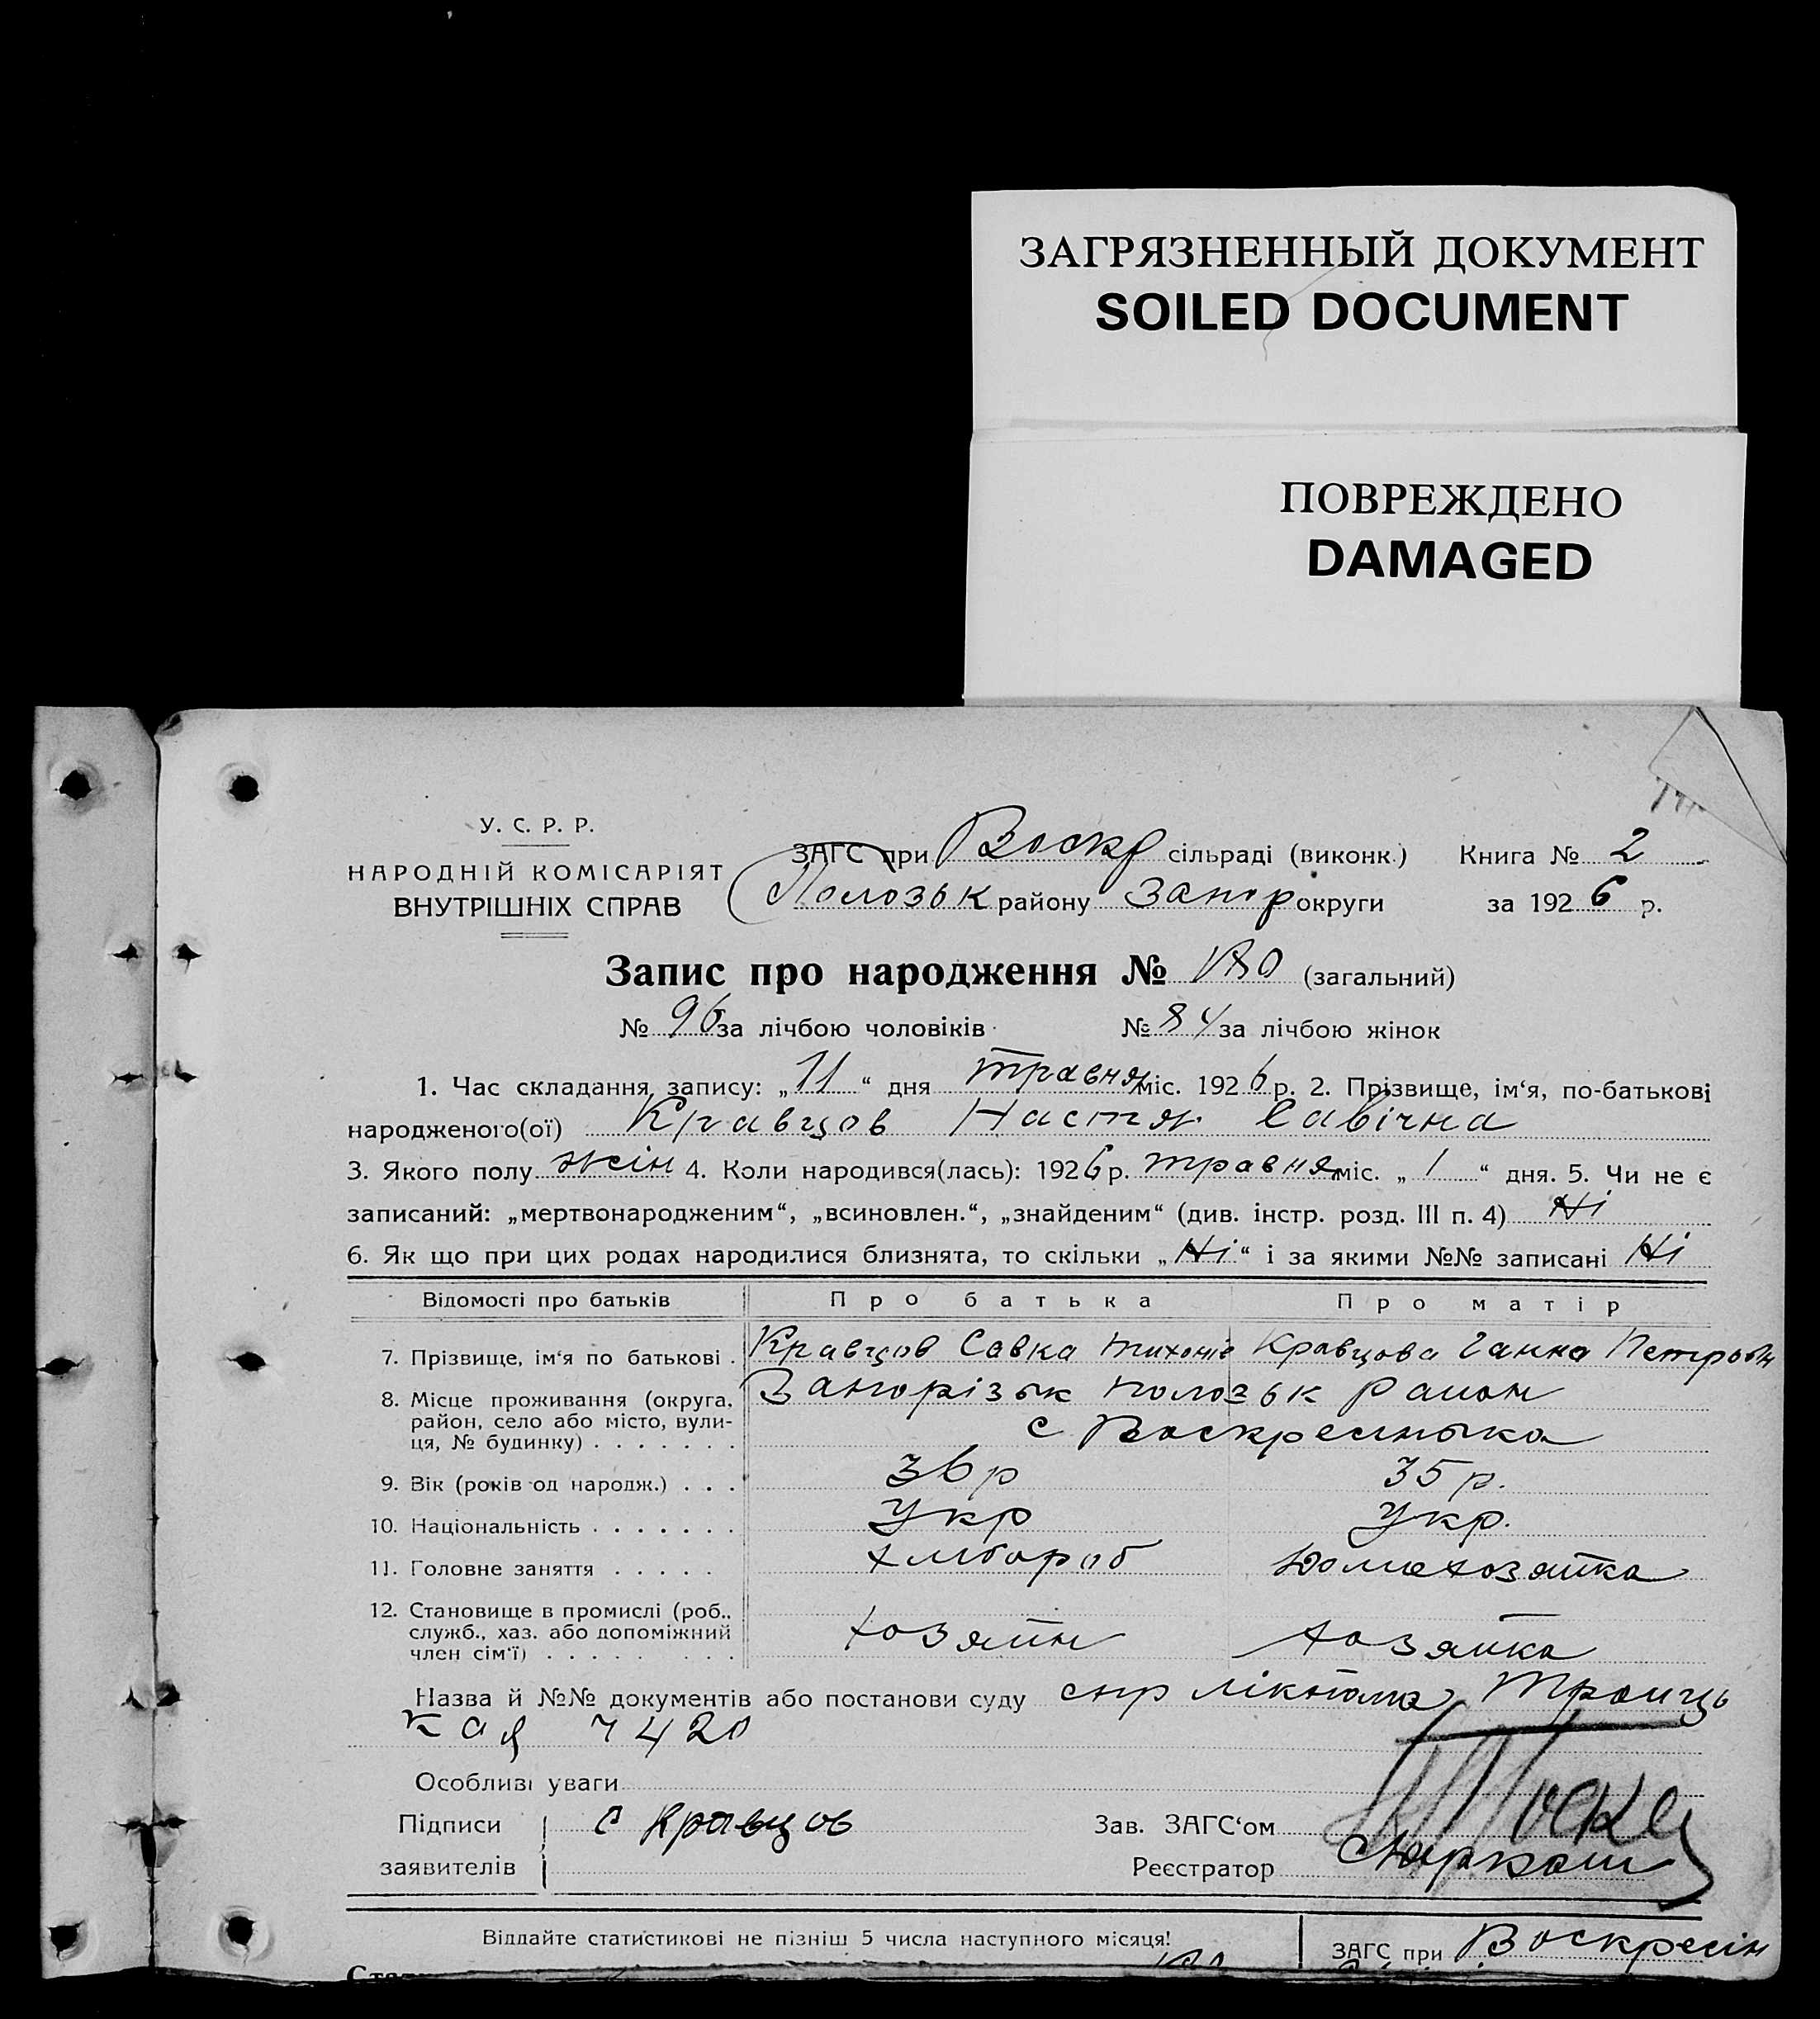 ЗАГРЯЗНЕННЫЙ ДОКУМЕНТ
SOILED DOCUMENT
ПОВРЕЖДЕНО
DAMAGED
У. С. Р. Р.
НАРОДНІЙ КОМІСАРІЯТ
ВНУТРІШНІХ СПРАВ
ЗАГС при Воскр сільраді (виконк.) Книга № 2
Полозьк району Запор округи за 1926 р.
Запис про народження № 180 (загальний)
№ 96 за лічбою чоловіків № 84 за лічбою жінок
1. Час складання запису: „11“ дня травня міс. 1926 р. 2. Прізвище, ім‘я, по-батькові
народженого(ої) Кравцов Настя Савічна
3. Якого полу жін 4. Коли народився(лась): 1926 р. травня міс. „1“ дня. 5. Чи не є
записаний: „мертвонародженим“, „всиновлен.“, „знайденим“ (див. інстр. розд. III п. 4) Ні
6. Як що при цих родах народилися близнята, то скільки „Ні“ і за якими №№ записані Ні
Відомості про батьків Про батька Про матір
7. Прізвище, ім‘я по батькові . Кравцов Савка Тихонів Кравцова Ганна Петровн
8. Місце проживання (округа, Запорізьк полозьк район
район, село або місто, вули- с Воскресенька
ця, № будинку) . . . . . . .
9. Вік (років од народж.) . . . 36 р 35 р.
10. Національність . . . . . . . Укр Укр.
11. Головне заняття . . . . . Хлібороб Домохозяйка
12. Становище в промислі (роб.,
служб., хаз. або допоміжний хозяїн хозяйка
член сім‘ї) . . . . . . . .
Назва й №№ документів або постанови суду
кая 7420
Особливі уваги
Підписи С Кравцов Зав. ЗАГС‘ом
заявителів Реєстратор
Віддайте статистикові не пізніш 5 числа наступного місяця! ЗАГС при Воскресін